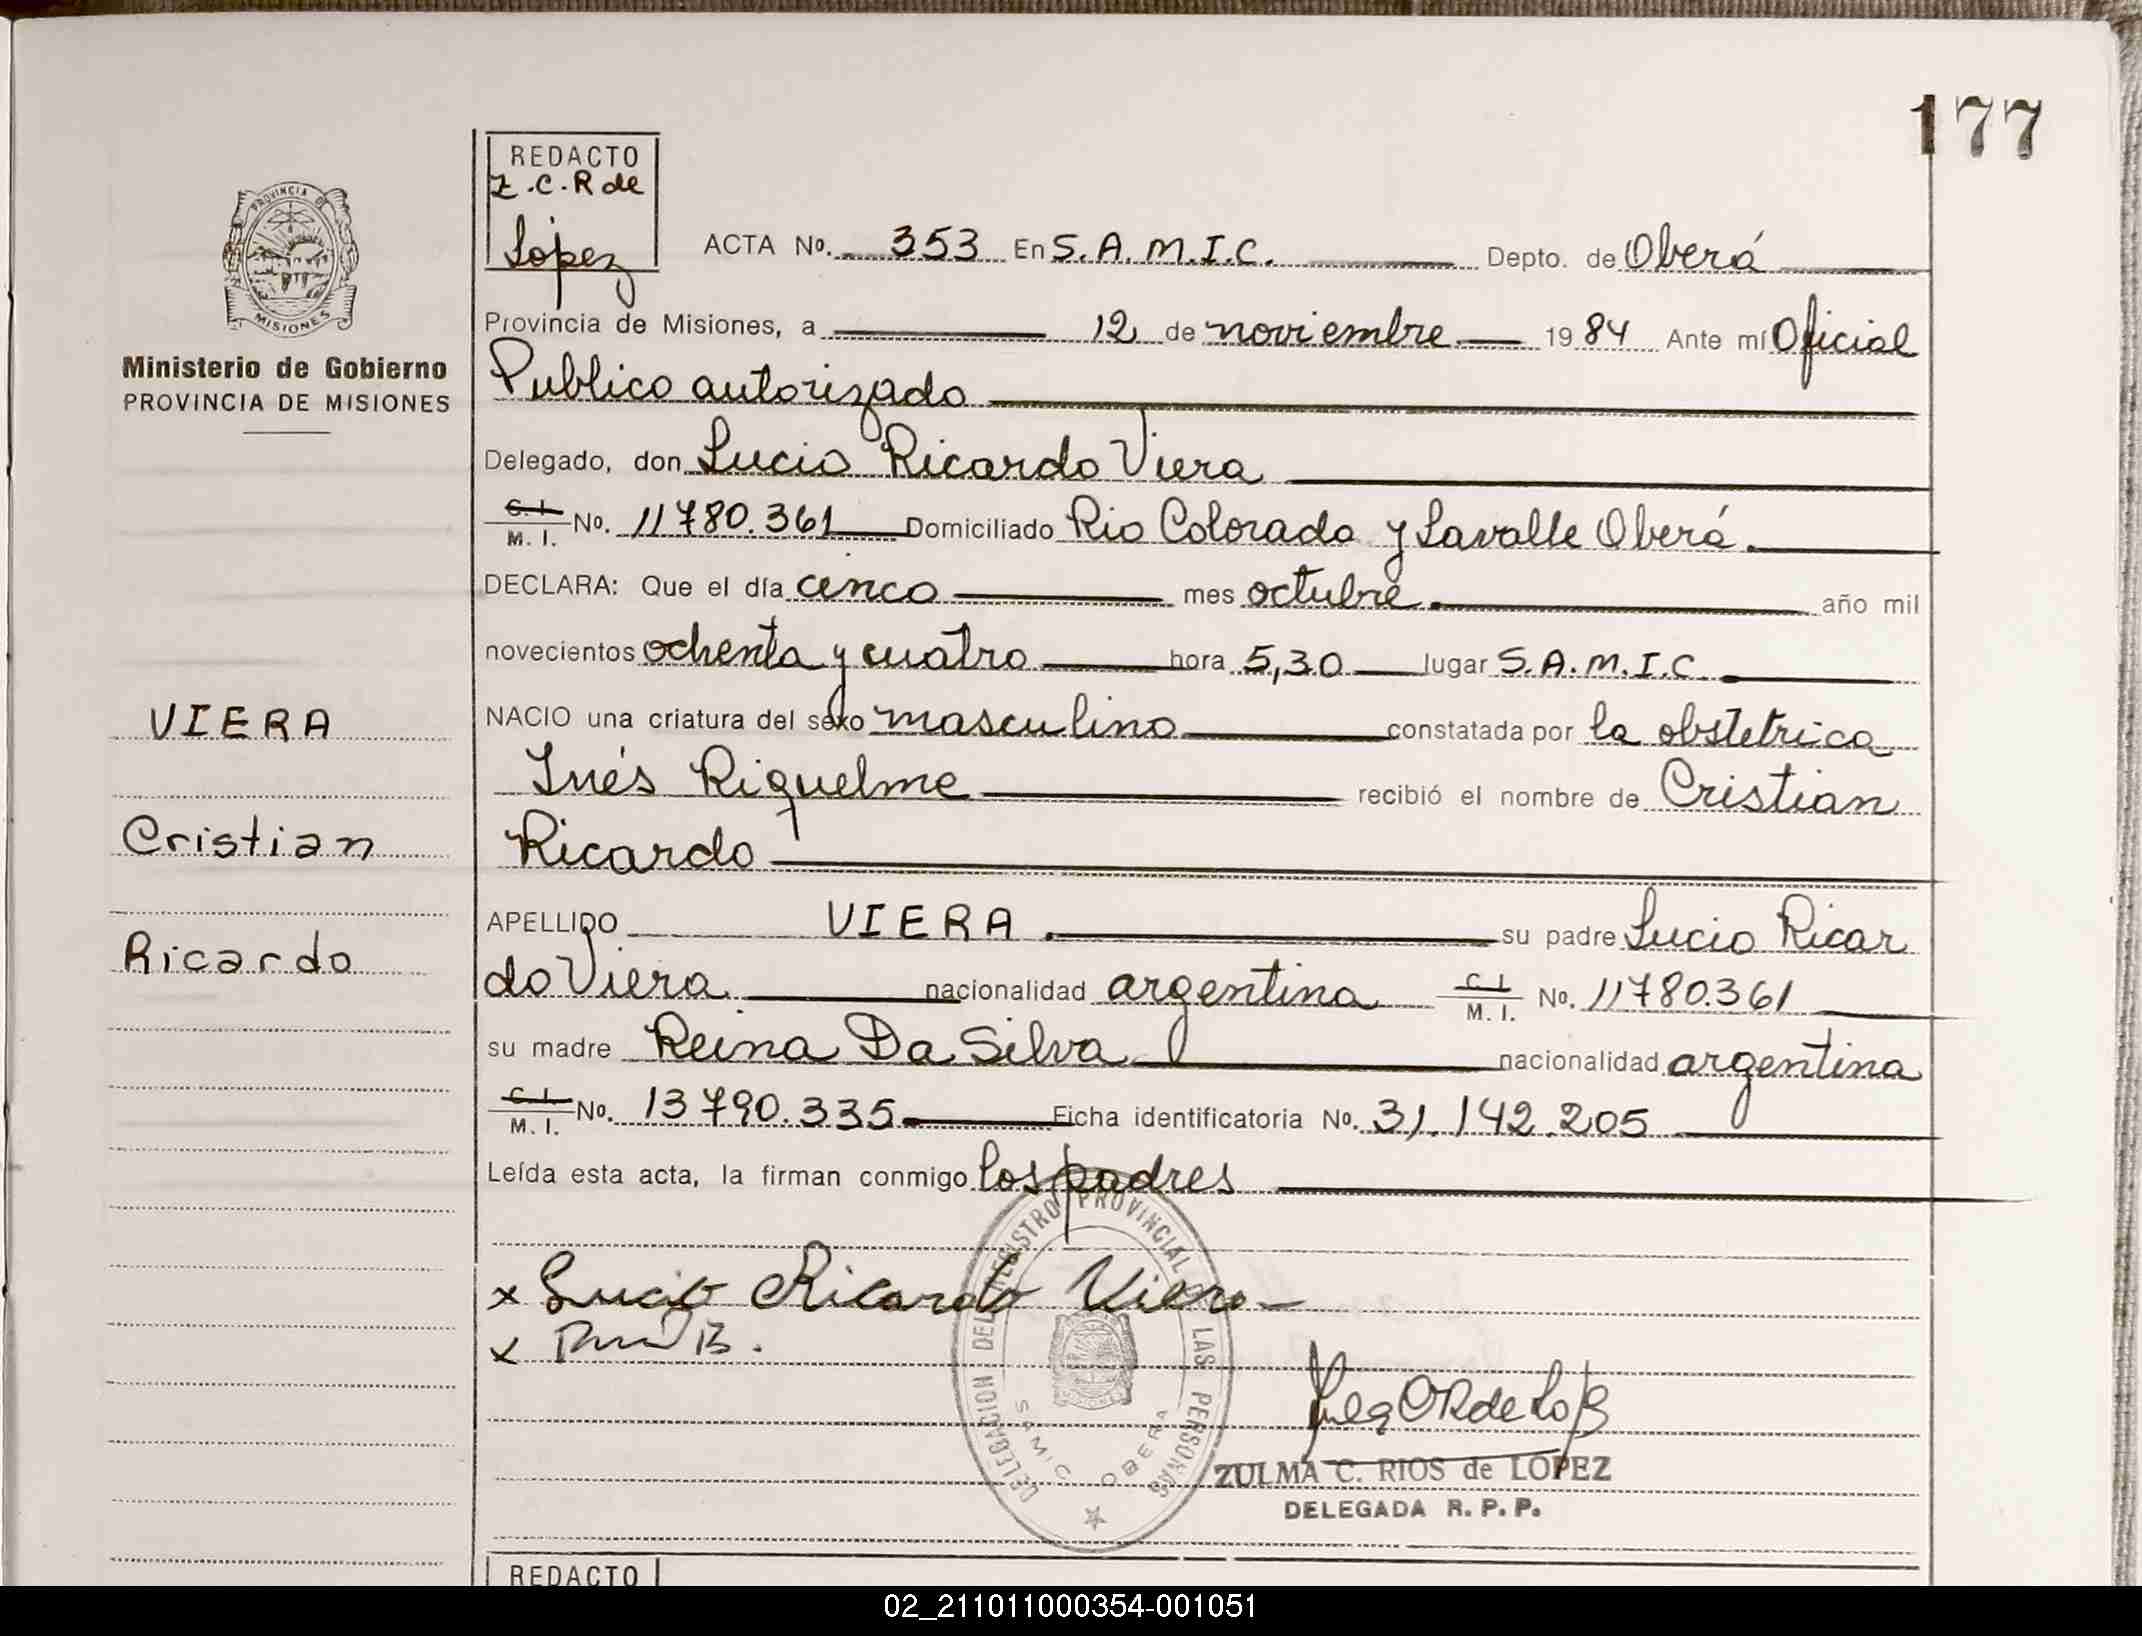 177
REDACTO
Z.C.R de
López
PROVINCIA DE
MISIONES
Ministerio de Gobierno
PROVINCIA DE MISIONES
ACTA No. 353 En S.A.M.I.C. Depto. de Oberá
Provincia de Misiones, a 12 de noviembre 1984 Ante mí Oficial
Publico autorizado
Delegado, don Lucio Ricardo Viera
C.I. M.I. No. 11780.361 Domiciliado Rio Colorado y Lavalle Oberá.
DECLARA: Que el día cinco mes octubre año mil
novecientos ochenta y cuatro hora 5,30 lugar S.A.M.I.C.
NACIO una criatura del sexo masculino constatada por la obstetrica
Inés Riquelme recibió el nombre de Cristian
Ricardo
APELLIDO VIERA su padre Lucio Ricar
do Viera nacionalidad argentina C.I. M.I. No. 11780.361
su madre Reina Da Silva nacionalidad argentina
C.I. M.I. No. 13790.335 Ficha identificatoria No. 31.142.205
Leída esta acta, la firman conmigo los padres
VIERA
Cristian
Ricardo
x Lucio Ricardo Viera
x
DELEGACION DEL REGISTRO PROVINCIAL DE LAS PERSONAS
SAMIC OBERA
ZULMA C. RIOS de LOPEZ
DELEGADA R.P.P.
REDACTO
02_211011000354-001051